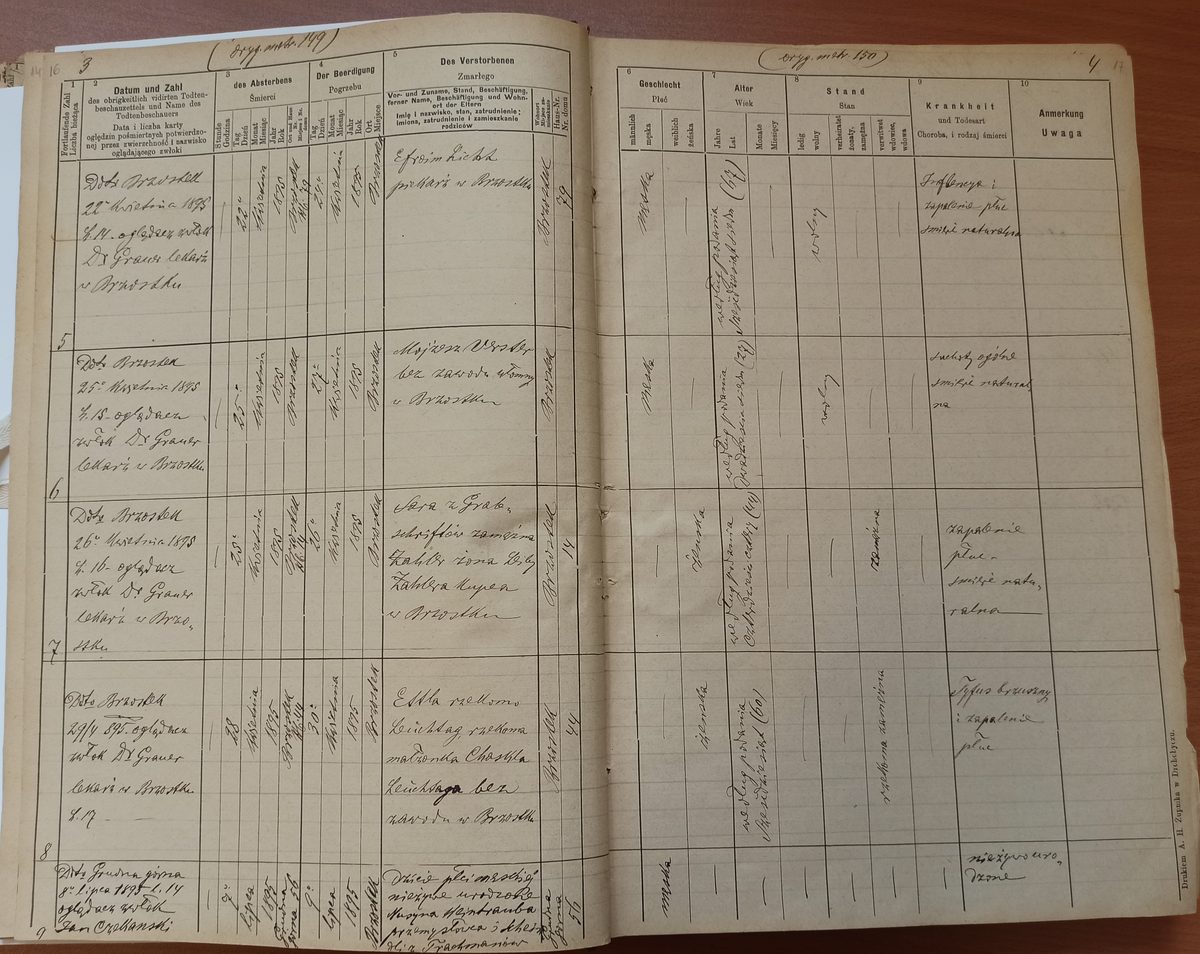 3
(oryg. metr. 149)
14 16
1
Fortlaufende Zahl
Liczba bieżąca
2
Datum und Zahl
des obrigkeitlich vidirten Todten-
beschauzettels und Name des
Todtenbeschauers
Data i liczba karty
oględzin pośmiertnych potwierdzo-
nej przez zwierzchność i nazwisko
oglądającego zwłoki
3
des Absterbens
Śmierci
Stunde
Godzina
Tag
Dzień
Monat
Miesiąc
Jahr
Rok
4
Der Beerdigung
Pogrzebu
Tag
Dzień
Monat
Miesiąc
Jahr
Rok
Ort
Miejsce
5
Des Verstorbenen
Zmarłego
Vor- und Zuname, Stand, Beschäftigung,
ferner Name, Beschäftigung und Wohn-
ort der Eltern
Imię i nazwisko, stan, zatrudnienie;
imiona, zatrudnienie i zamieszkanie
rodziców
Wohnort
Haus-Nr.
Nr. domu
Dto Brzostek
22 Kwietnia 1895
L. 14 oglądacz zwłok
Dr Grauer lekarz
w Brzostku
22
Kwietnia
1895
Brzostek
Kwietnia
1895
Brzostek
Efroim Licht
piekarz w Brzostku
Brzostek
79
5
Dto Brzostek
25 Kwietnia 1895
L. 15 oglądacz
zwłok Dr Grauer
lekarz w Brzostku
25
Kwietnia
1895
Brzostek
27
Kwietnia
1895
Brzostek
Mojżesz Verster
bez zawodu ułomny
w Brzostku
Brzostek
6
Dto Brzostek
26 Kwietnia 1895
L. 16 oglądacz
zwłok Dr Grauer
lekarz w Brzo-
stku
25
Kwietnia
1895
Brzostek
26
Kwietnia
1895
Brzostek
Sara z Grab-
schriftów zamężna
Zahler żona Leiby
Zahlera kupca
w Brzostku
Brzostek
14
7
Dto Brzostek
29/4 895 oglądacz
zwłok Dr Grauer
lekarz w Brzostku
L. 17
28
Kwietnia
1895
Brzostek
30
Kwietnia
1895
Brzostek
Estla rzekomo
Leuchtag, rzekoma
małżonka Chaskla
Leuchtaga bez
zawodu w Brzostku
Brzostek
44
8
Dto Grudna górna
8 lipca 1895 L. 14
oglądacz zwłok
Jan Czekański
7
lipca
1895
Grudna
górna 56
9
lipca
1895
Brzostek
Dziecię płci męskiej
nieżywe urodzone
Nusyna Weintrauba
przemysłowca i Chein-
dli z Trachmanów
Grudna
górna
56
9
(oryg. metr. 150)
4
17
6
Geschlecht
Płeć
männlich
męska
weiblich
żeńska
7
Alter
Wiek
Jahre
Lat
Monate
Miesięcy
8
Stand
Stan
ledig
wolny
verheiratet
żonaty,
zamężna
verwitwet
wdowiec,
wdowa
9
Krankheit
und Todesart
Choroba, i rodzaj śmierci
10
Anmerkung
Uwaga
męska
według podania
Sześćdziesiąt siedm (67)
wolny
Influenza i
zapalenie płuc
śmierć naturalna
męska
według podania
Dwadzieścia siedm (27)
wolny
suchoty ogólne
śmierć natural-
na
żeńska
według podania
Czterdzieści cztery (44)
zamężna
zapalenie
płuc -
śmierć natu-
ralna
żeńska
według podania
Sześćdziesiąt (60)
rzekoma zamężna
Tyfus brzuszny
i zapalenie
płuc
męska
nieżywo uro-
dzone
Drukiem A. H. Żupnika w Drohobyczu.